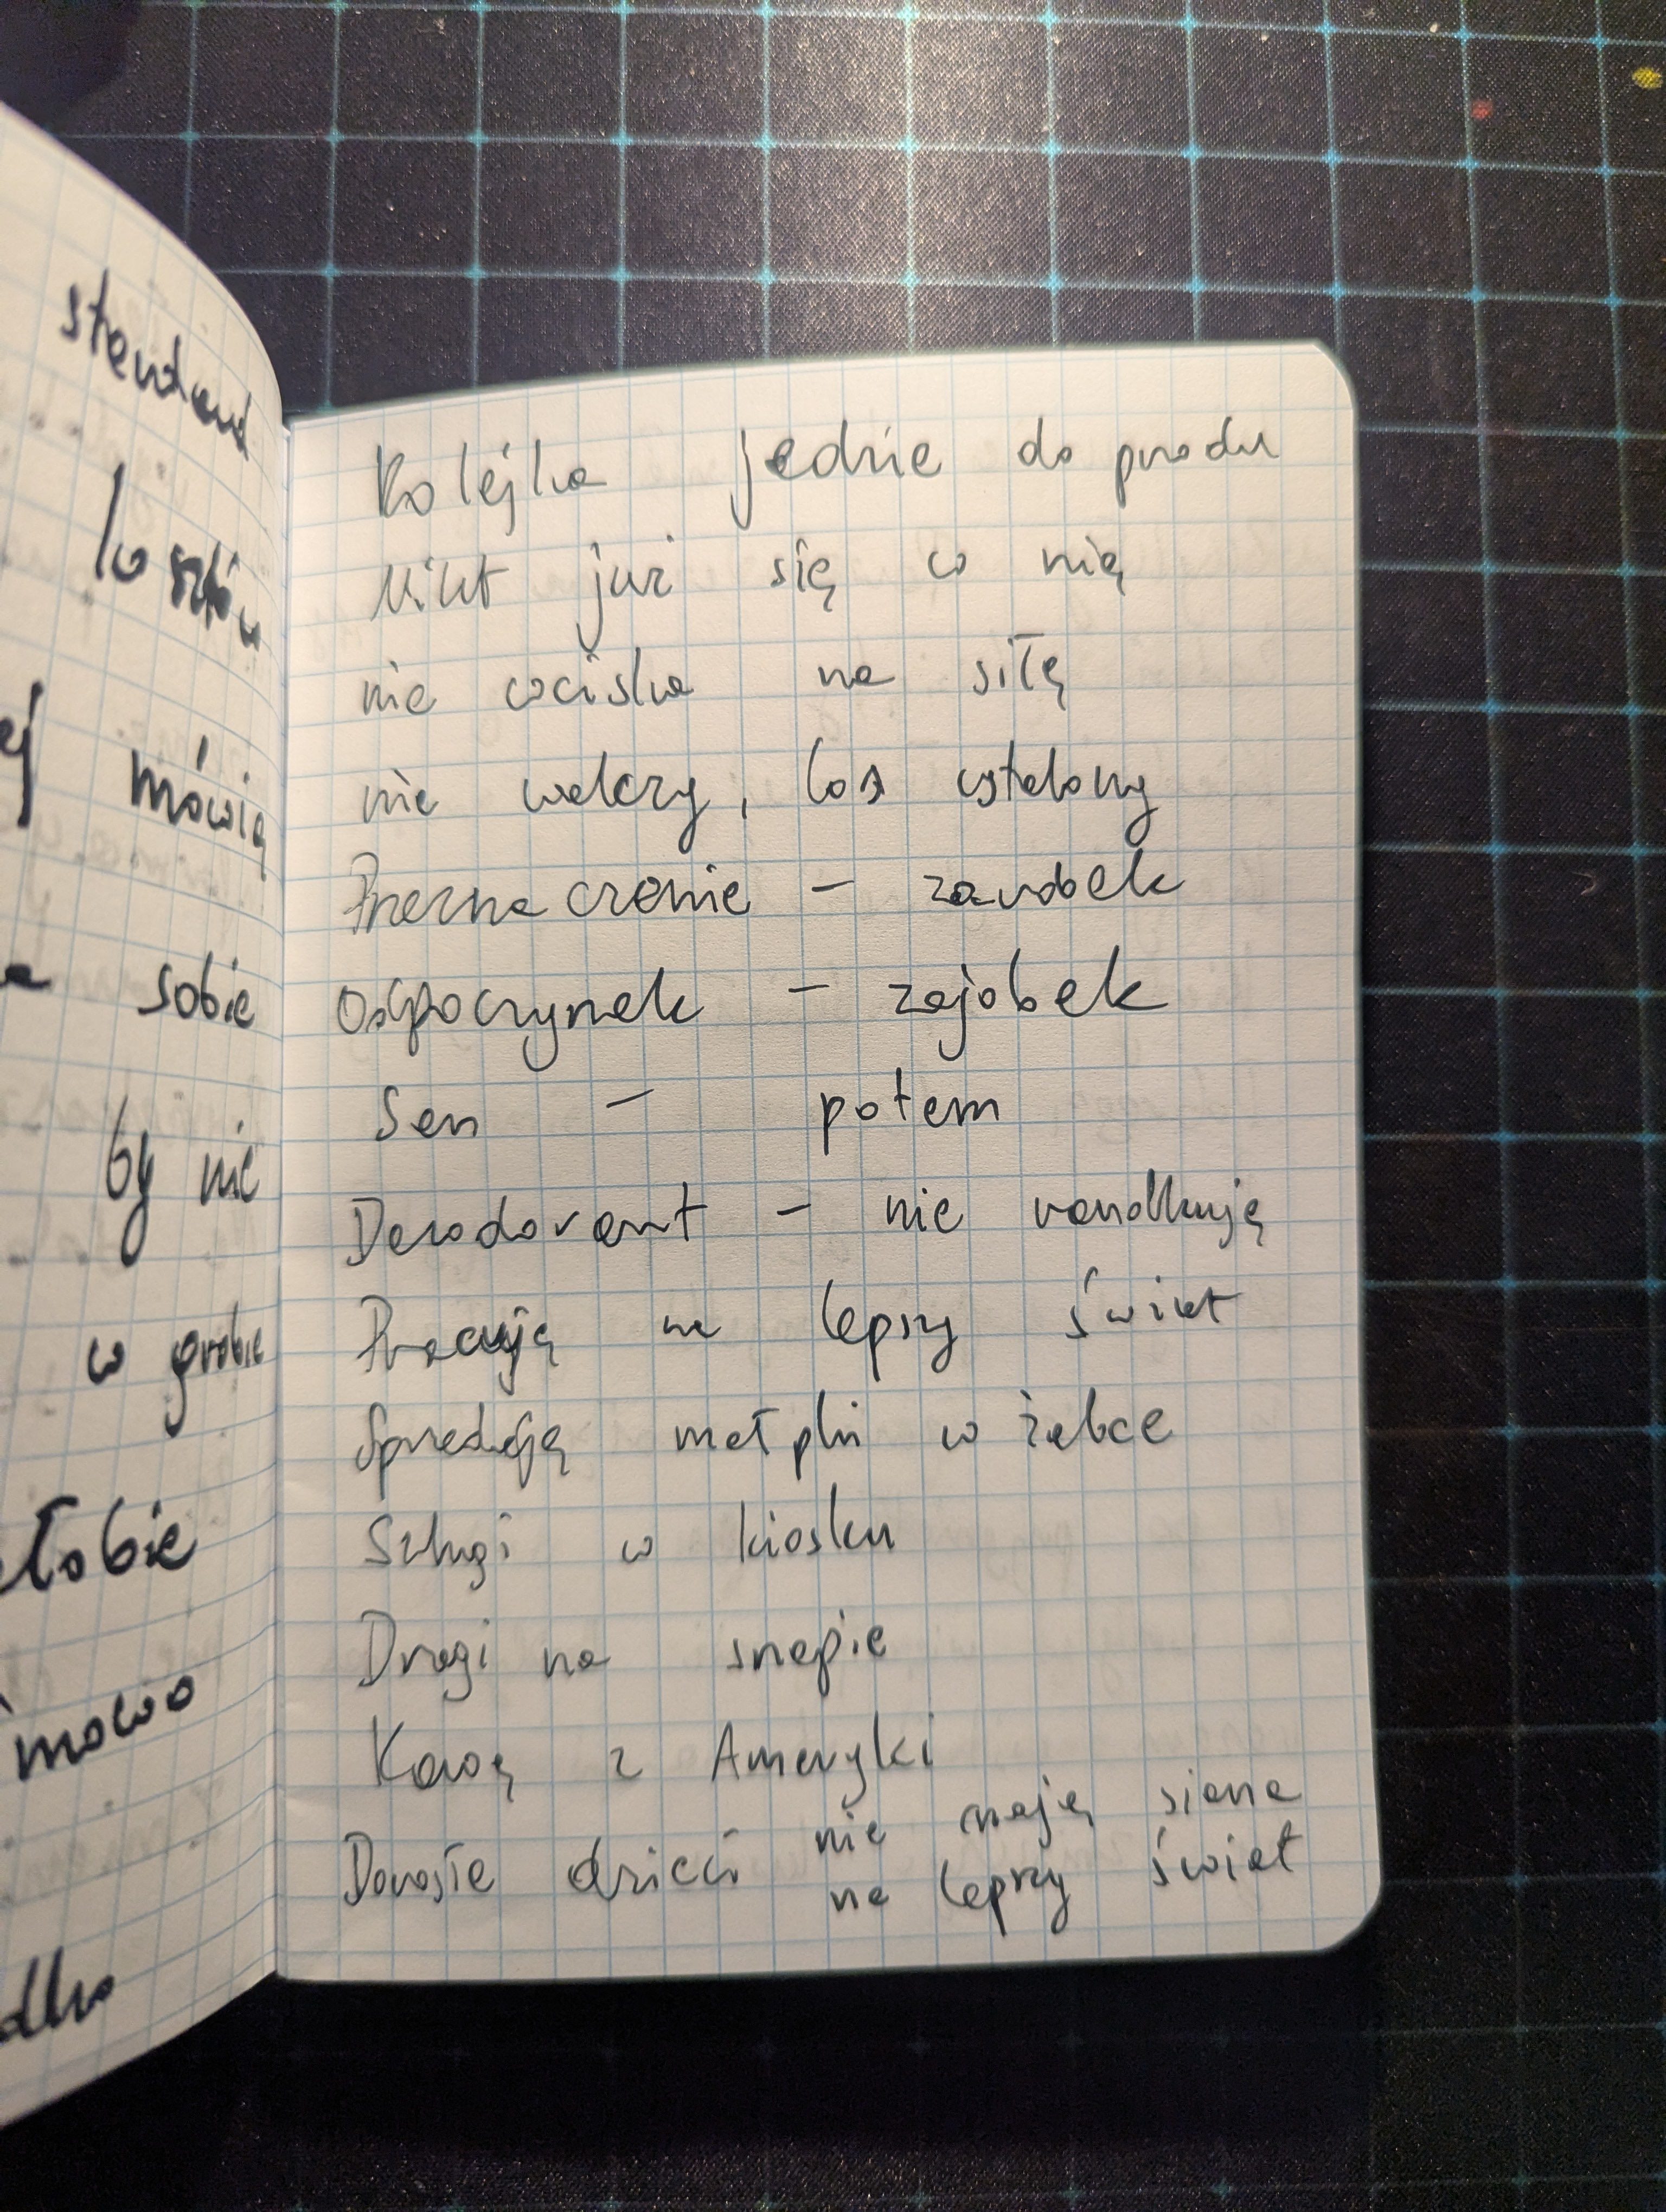 standard
kosztów
ej mówią
sobie
by nie
w grobie
żłobie
mowo
Kolejka jedzie do przodu
Nikt już się w nią
nie wciska na siłę
nie walczy, los ustalony
Przeznaczenie – zarobek
Odpoczynek – zajobek
Sen – potem
Dezodorant – nie randkują
Pracują na lepszy świat
Sprzedają małpki w żabce
Szlugi w kiosku
Dragi na snapie
Kawą z Ameryki
Dorosłe dzieci nie mają siana
na lepszy świat